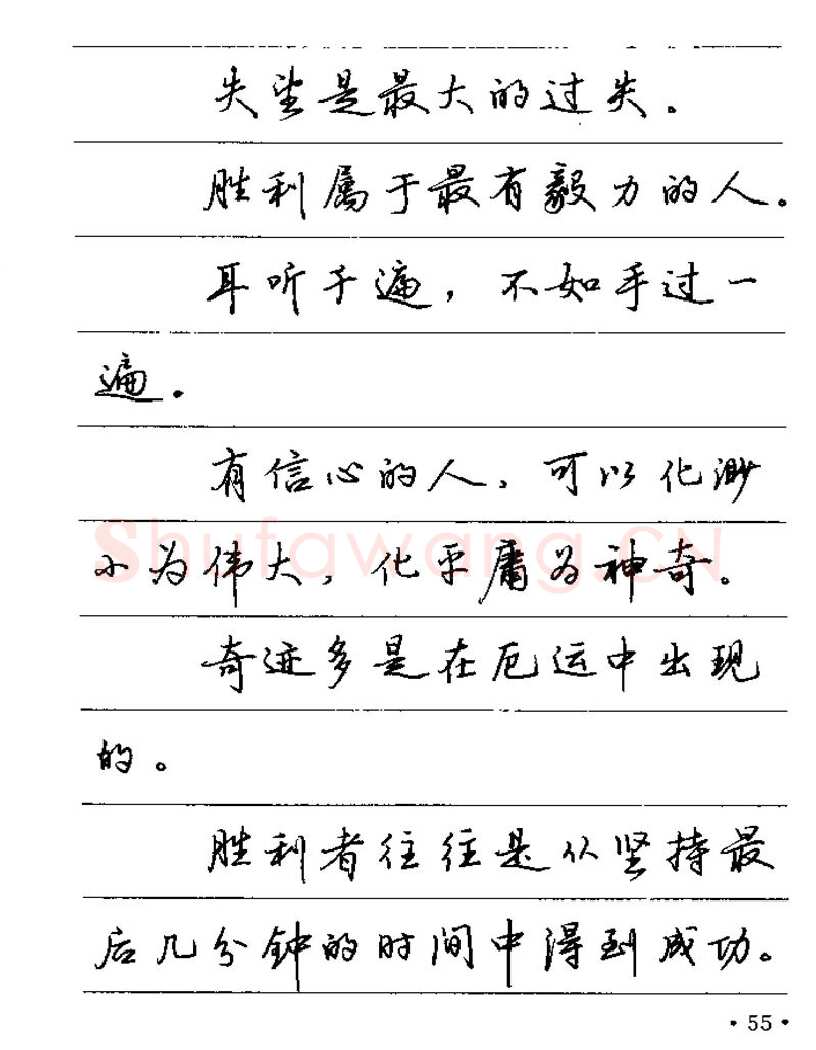 失望是最大的过失。
胜利属于最有毅力的人。
耳听千遍，不如手过一
遍。
有信心的人，可以化渺
小为伟大，化平庸为神奇。
Shufawang.CN
奇迹多是在厄运中出现
的。
胜利者往往是从坚持最
后几分钟的时间中得到成功。
·55·